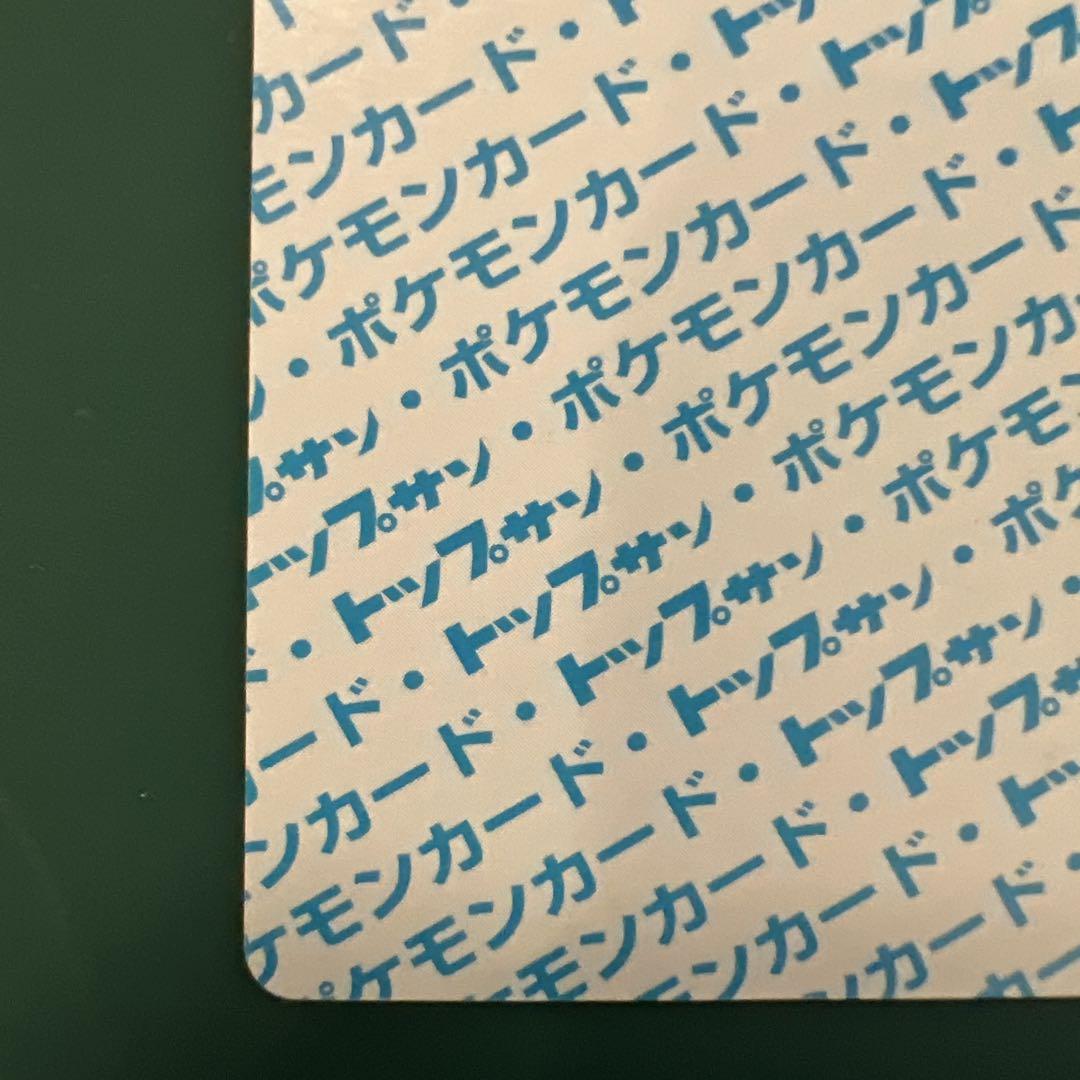 カード・
モンカード・ト
ポケモンカード・トッ
ン・ポケモンカード・トップ
プサン・ポケモンカード・トップ
トップサン・ポケモンカード・ト
・トップサン・ポケモンカード
カード・トップサン・ポケモンカ
ンカード・トップサン・ポケモ
ケモンカード・トップサン・ポケ
ポケモンカード・トップサン・
ケモンカード・トップサ
モンカード・トッ
ンカード・